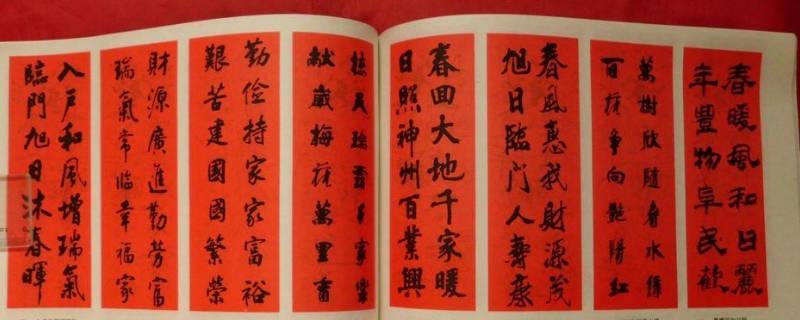 春暖風和日麗
年豐物阜民歡
萬樹欣隨春水綠
百花争向艷陽紅
春風惠我財源茂
旭日臨門人壽康
春回大地千家暖
日照神州百業興
接天瑞雪千家樂
献歲梅花萬里香
勤俭持家家富裕
艱苦建國國繁榮
財源廣進勤劳富
瑞氣常临幸福家
入户和風增瑞氣
臨門旭日沐春暉